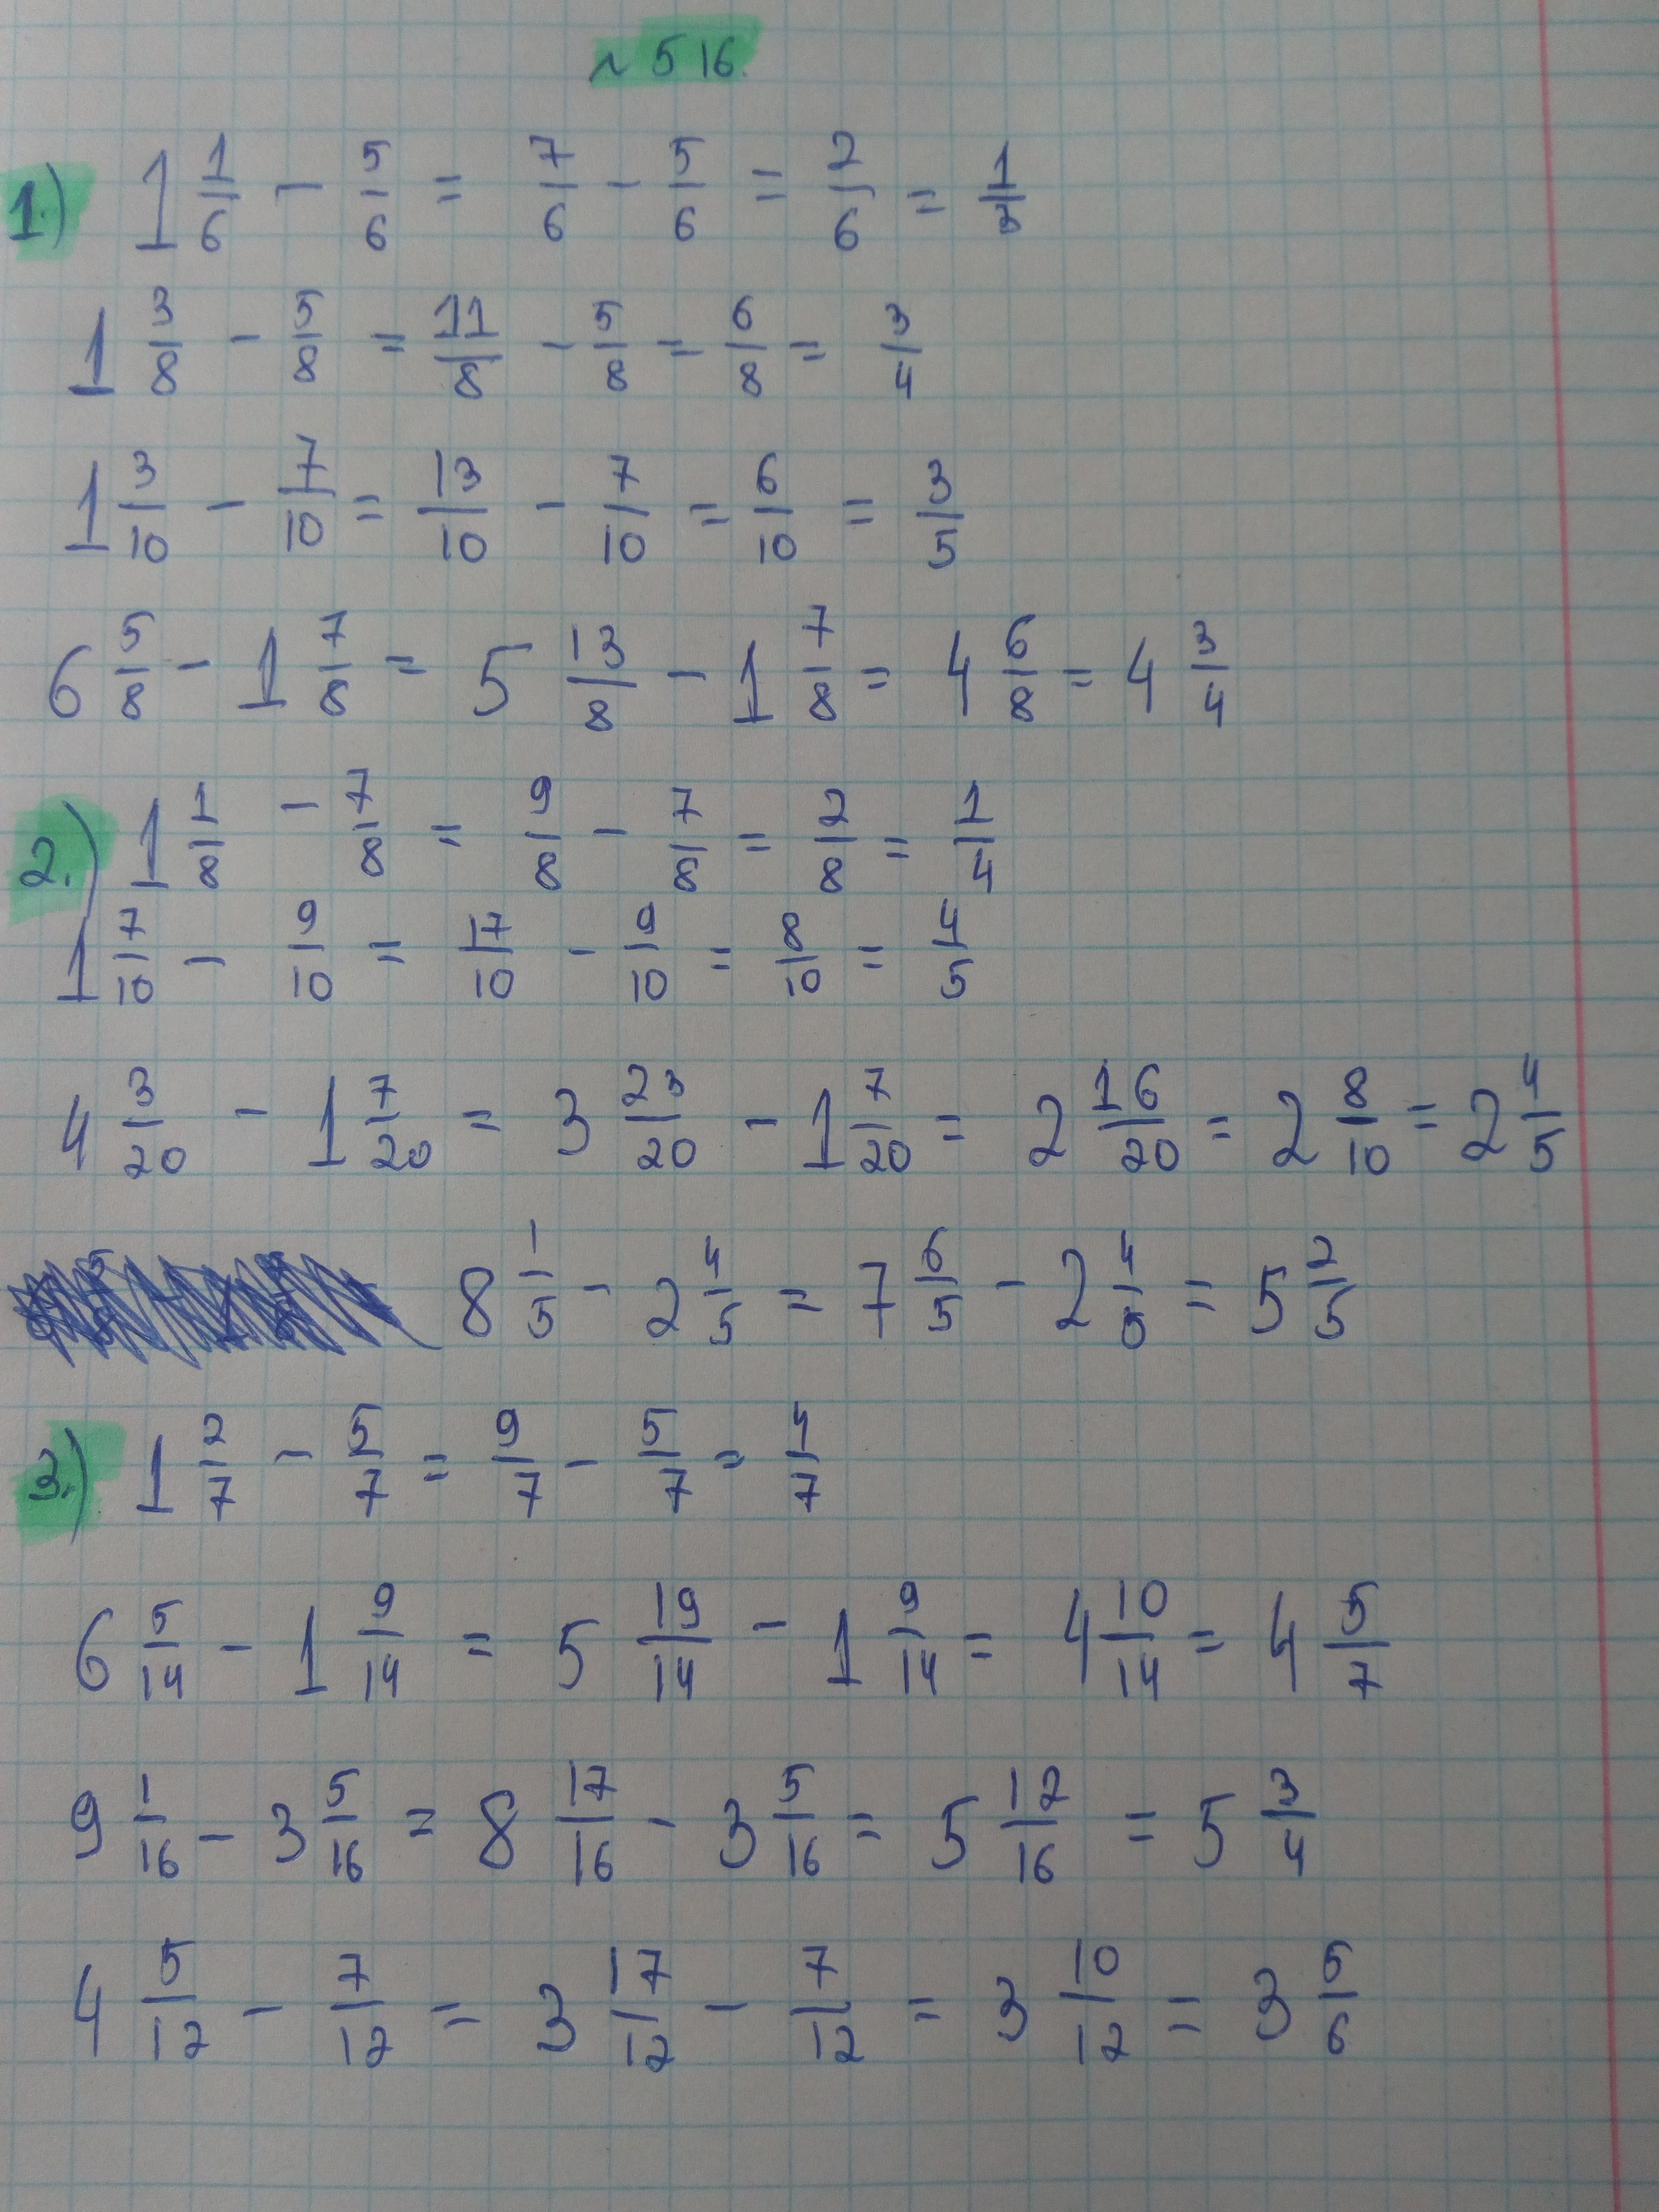 № 516.
1.) 1 1/6 − 5/6 = 7/6 − 5/6 = 2/6 = 1/3
1 3/8 − 5/8 = 11/8 − 5/8 = 6/8 = 3/4
1 3/10 − 7/10 = 13/10 − 7/10 = 6/10 = 3/5
6 5/8 − 1 7/8 = 5 13/8 − 1 7/8 = 4 6/8 = 4 3/4
2.) 1 1/8 − 7/8 = 9/8 − 7/8 = 2/8 = 1/4
1 7/10 − 9/10 = 17/10 − 9/10 = 8/10 = 4/5
4 3/20 − 1 7/20 = 3 23/20 − 1 7/20 = 2 16/20 = 2 8/10 = 2 4/5
8 1/5 − 2 4/5 = 7 6/5 − 2 4/5 = 5 2/5
3.) 1 2/7 − 5/7 = 9/7 − 5/7 = 4/7
6 5/14 − 1 9/14 = 5 19/14 − 1 9/14 = 4 10/14 = 4 5/7
9 1/16 − 3 5/16 = 8 17/16 − 3 5/16 = 5 12/16 = 5 3/4
4 5/12 − 7/12 = 3 17/12 − 7/12 = 3 10/12 = 3 5/6